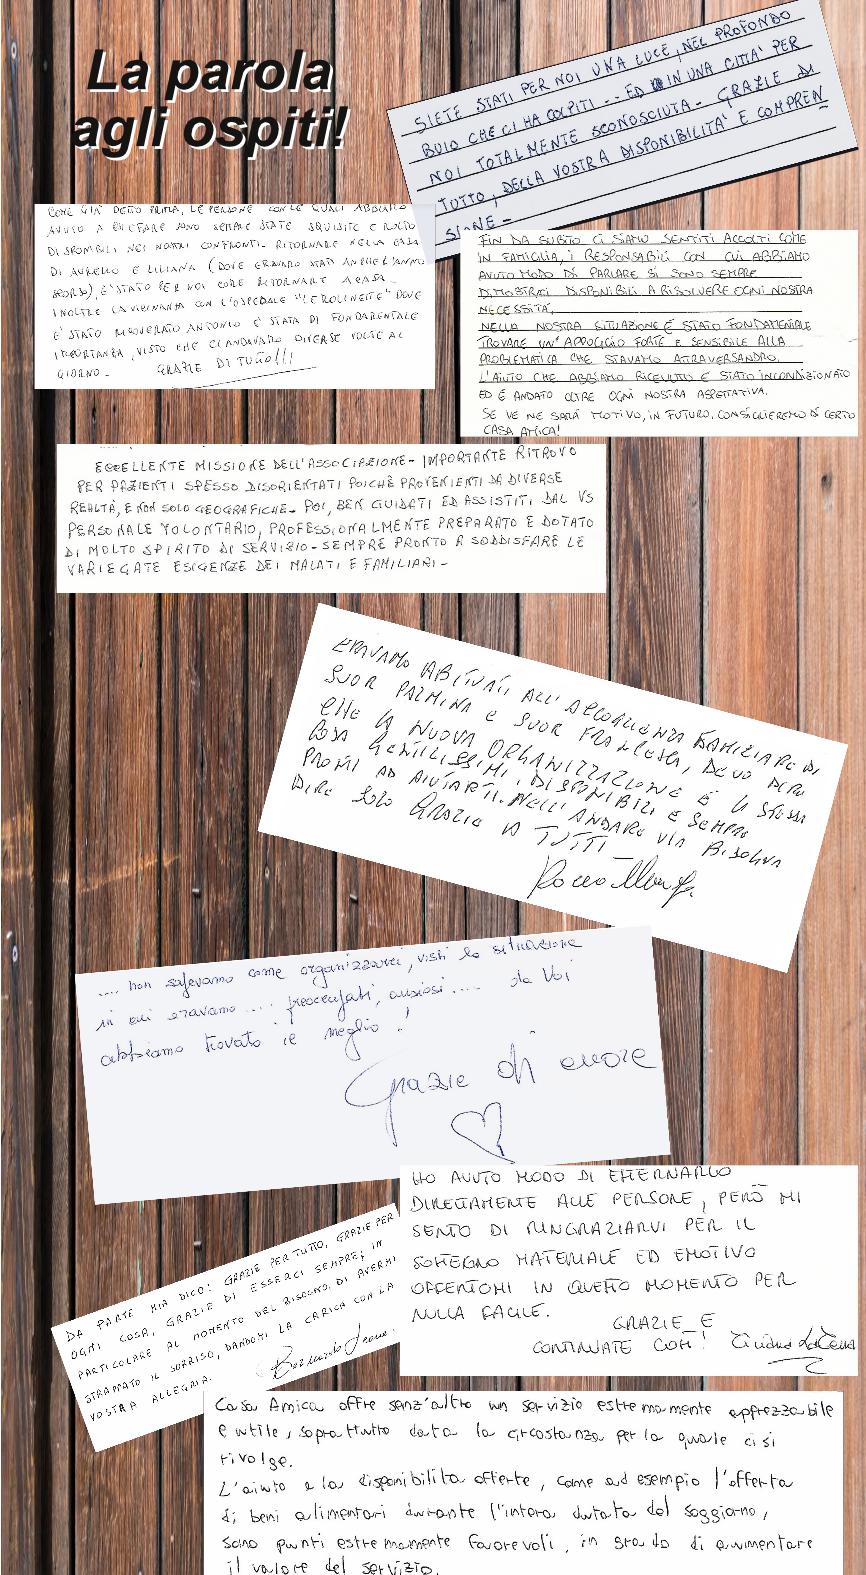 La parola
agli ospiti!
SIETE STATI PER NOI UNA LUCE, NEL PROFONDO
BUIO CHE CI HA COLPITI -- ED IN UNA CITTA' PER
NOI TOTALMENTE SCONOSCIUTA - GRAZIE DI
TUTTO, DELLA VOSTRA DISPONIBILITA' E COMPREN
SIONE -
COME GIA' DETTO PRIMA, LE PERSONE CON LE QUALI ABBIAMO
AVUTO A CHE FARE SONO SEMPRE STATE SQUISITE E MOLTO
DISPONIBILI NEI NOSTRI CONFRONTI. RITORNARE NELLA CASA
DI AURELIO E LILIANA (DOVE ERAVAMO STATI ANCHE L'ANNO
SCORSO), E' STATO PER NOI COME RITORNARE A CASA.
INOLTRE LA VICINANZA CON L'OSPEDALE "LE MOLINETTE" DOVE
E' STATO RICOVERATO ANTONIO E' STATA DI FONDAMENTALE
IMPORTANZA, VISTO CHE CI ANDAVAMO DIVERSE VOLTE AL
GIORNO. GRAZIE DI TUTTO!!!
FIN DA SUBITO CI SIAMO SENTITI ACCOLTI COME
IN FAMIGLIA, I RESPONSABILI CON CUI ABBIAMO
AVUTO MODO DI PARLARE SI SONO SEMPRE
DIMOSTRATI DISPONIBILI A RISOLVERE OGNI NOSTRA
NECESSITÀ.
NELLA NOSTRA SITUAZIONE È STATO FONDAMENTALE
TROVARE UN'APPOGGIO FORTE E SENSIBILE ALLA
PROBLEMATICA CHE STAVAMO ATTRAVERSANDO.
L'AIUTO CHE ABBIAMO RICEVUTO È STATO INCONDIZIONATO
ED È ANDATO OLTRE OGNI NOSTRA ASPETTATIVA.
SE VE NE SARÀ MOTIVO, IN FUTURO, CONSIGLIEREMO DI CERTO
CASA AMICA!
ECCELLENTE MISSIONE DELL'ASSOCIAZIONE - IMPORTANTE RITROVO
PER PAZIENTI SPESSO DISORIENTATI POICHÈ PROVENIENTI DA DIVERSE
REALTÀ, E NON SOLO GEOGRAFICHE - POI, BEN GUIDATI ED ASSISTITI DAL VS
PERSONALE VOLONTARIO, PROFESSIONALMENTE PREPARATO E DOTATO
DI MOLTO SPIRITO DI SERVIZIO - SEMPRE PRONTO A SODDISFARE LE
VARIEGATE ESIGENZE DEI MALATI E FAMILIARI -
ERAVAMO ABITUATI ALL'ACCOGLIENZA FAMILIARE DI
SUOR PALMINA E SUOR FRANCESCA, DEVO DIRE
CHE LA NUOVA ORGANIZZAZIONE È LA STESSA
COSA GENTILISSIMI, DISPONIBILI E SEMPRE
PRONTI AD AIUTARTI. NELL'ANDARE VIA BISOGNA
DIRE SOLO GRAZIE A TUTTI
Rocco
.... non sapevamo come organizzarci, visti la situazione
in cui eravamo .... preoccupati, ansiosi .... da Voi
abbiamo trovato il meglio!
Grazie di cuore
HO AVUTO MODO DI ESTERNARLO
DIRETTAMENTE ALLE PERSONE, PERÒ MI
SENTO DI RINGRAZIARVI PER IL
SOSTEGNO MATERIALE ED EMOTIVO
OFFERTOMI IN QUESTO MOMENTO PER
NULLA FACILE.
GRAZIE E
CONTINUATE COSÌ!
DA PARTE MIA DICO: GRAZIE PER TUTTO, GRAZIE PER
OGNI COSA, GRAZIE DI ESSERCI SEMPRE; IN
PARTICOLARE AL MOMENTO DEL BISOGNO, DI AVERMI
STRAPPATO IL SORRISO, DANDOMI LA CARICA CON LA
VOSTRA ALLEGRIA.
Casa Amica offre senz'altro un servizio estremamente apprezzabile
e utile, soprattutto data la circostanza per la quale ci si
rivolge.
L'aiuto e la disponibilita offerte, come ad esempio l'offerta
di beni alimentari durante l'intera durata del soggiorno,
sono punti estremamente favorevoli, in grado di aumentare
il valore del servizio.